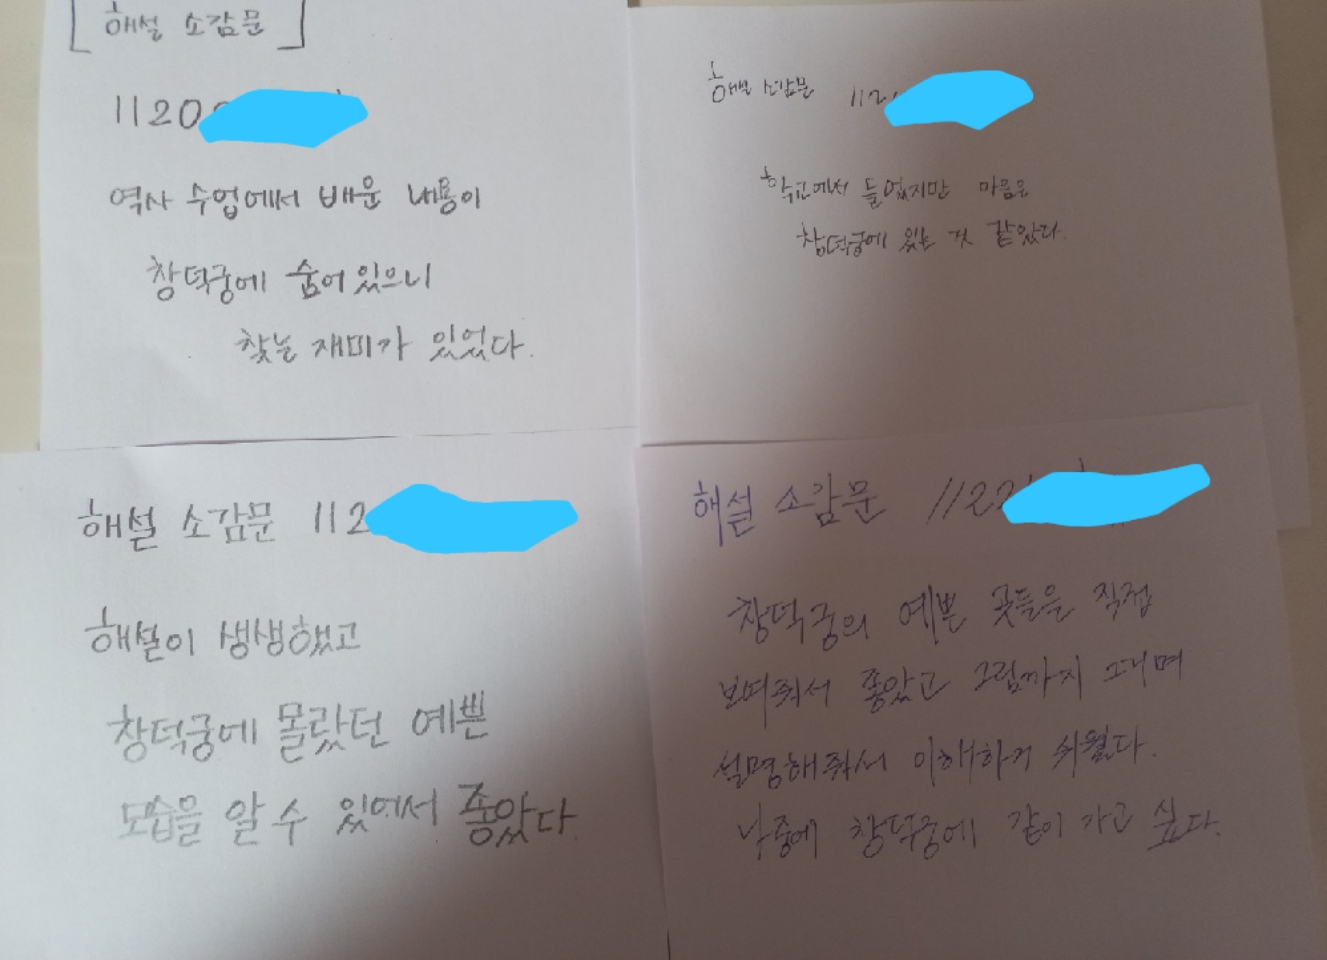 [해설 소감문]
1120
역사 수업에서 배운 내용이
창덕궁에 숨어있으니
찾는 재미가 있었다.
해설 소감문 112
학교에서 들었지만 마음은
창덕궁에 있는 것 같았다.
해설 소감문 112
해설이 생생했고
창덕궁에 몰랐던 예쁜
모습을 알 수 있어서 좋았다.
해설 소감문 1122
창덕궁의 예쁜 곳들을 직접
보여줘서 좋았고 그림까지 그리며
설명해줘서 이해하기 쉬웠다.
나중에 창덕궁에 같이 가고 싶다.